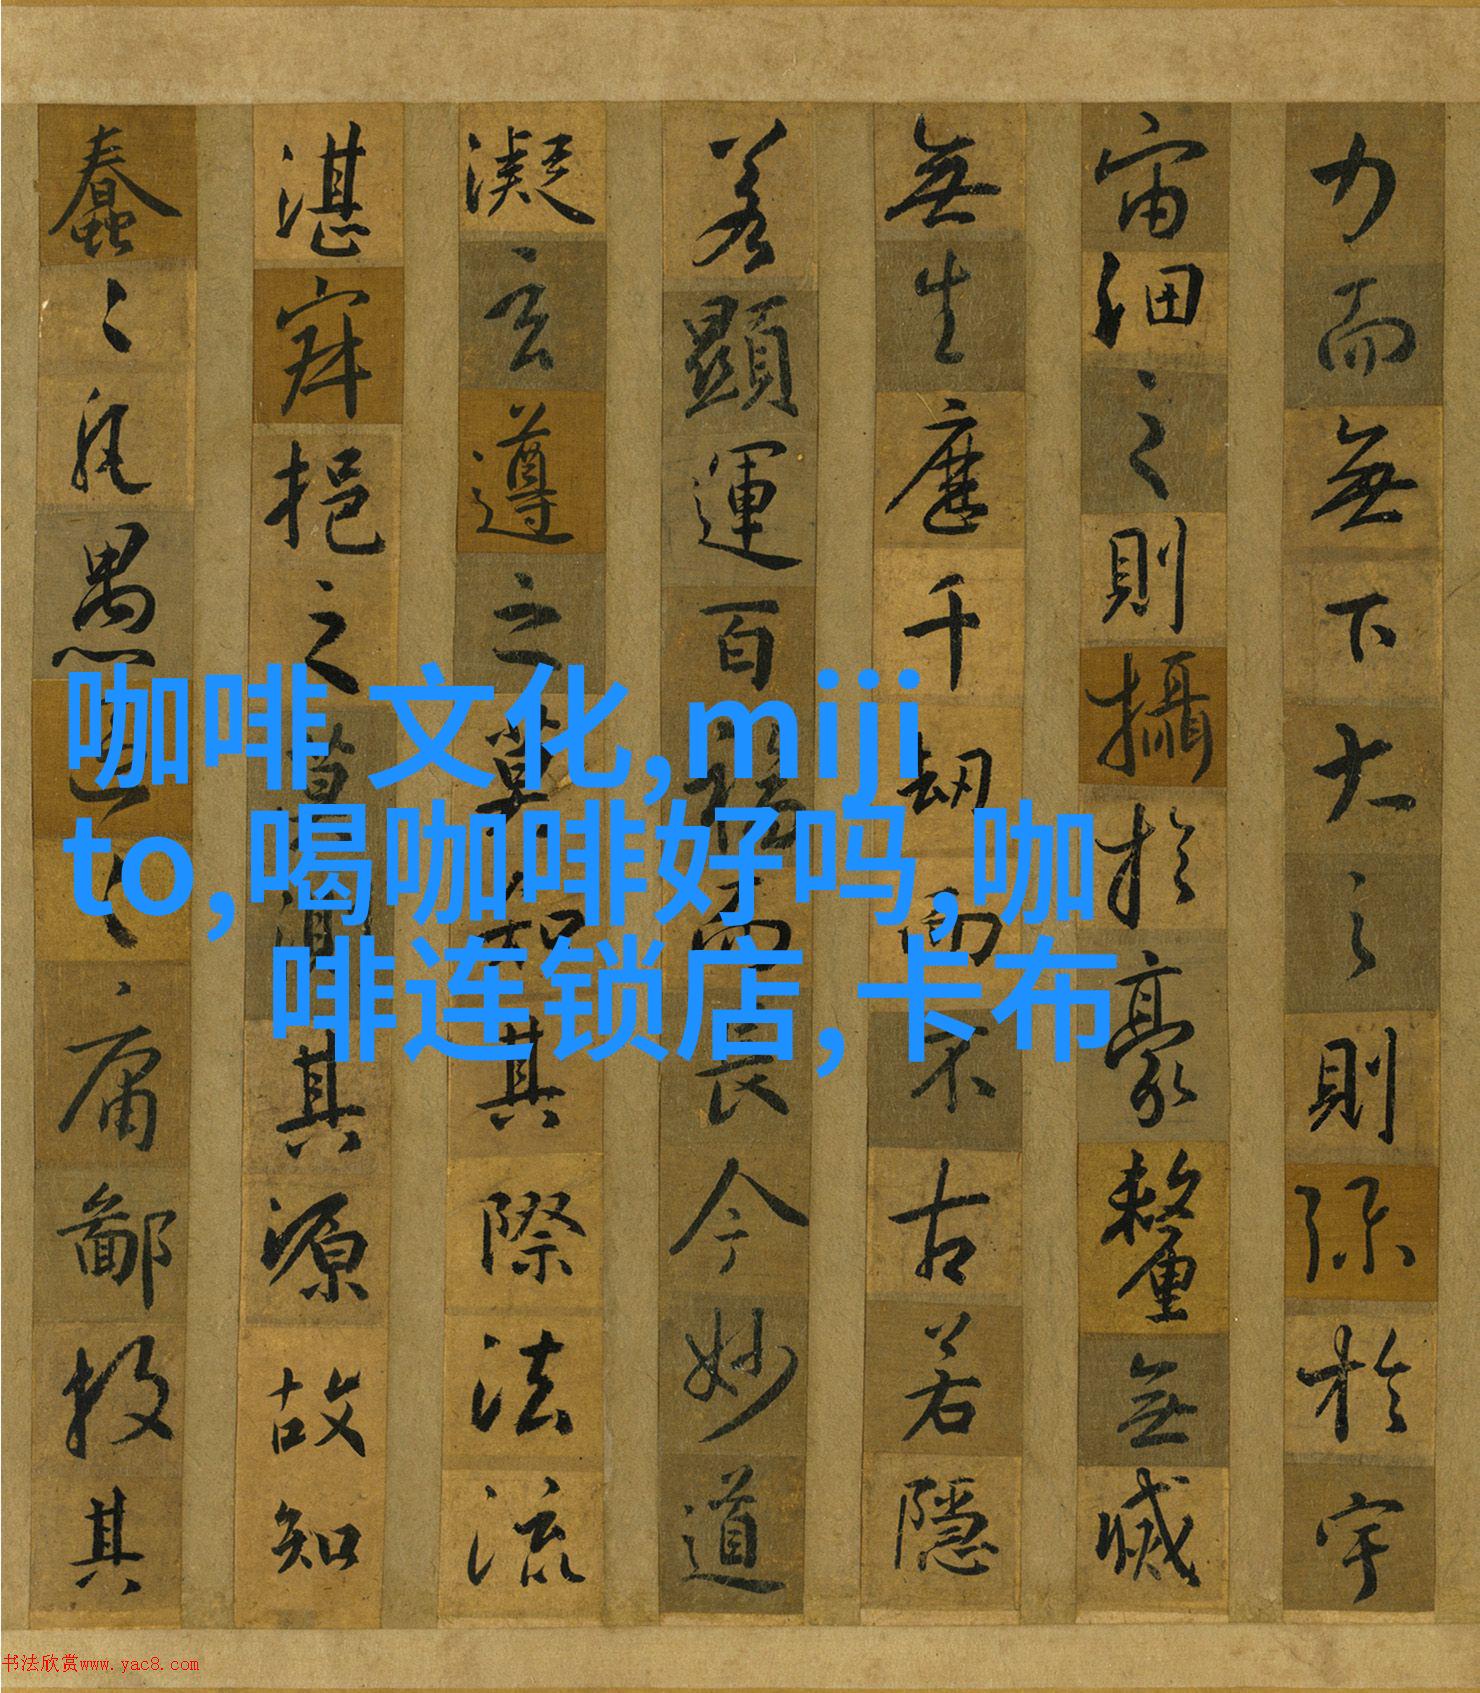 力而無下大之則弥於宇
宙細之則攝於豪釐無滅
無生歷千劫而不古若隱
若顯運百福而長今妙道
凝玄遵之莫知其際法流
湛寂挹之莫測其源故知
蠢々凡愚區々庸鄙投其
咖啡 文化,miji
to,喝咖啡好吗,咖
啡连锁店, 卡布
书法欣赏www.yac8.com